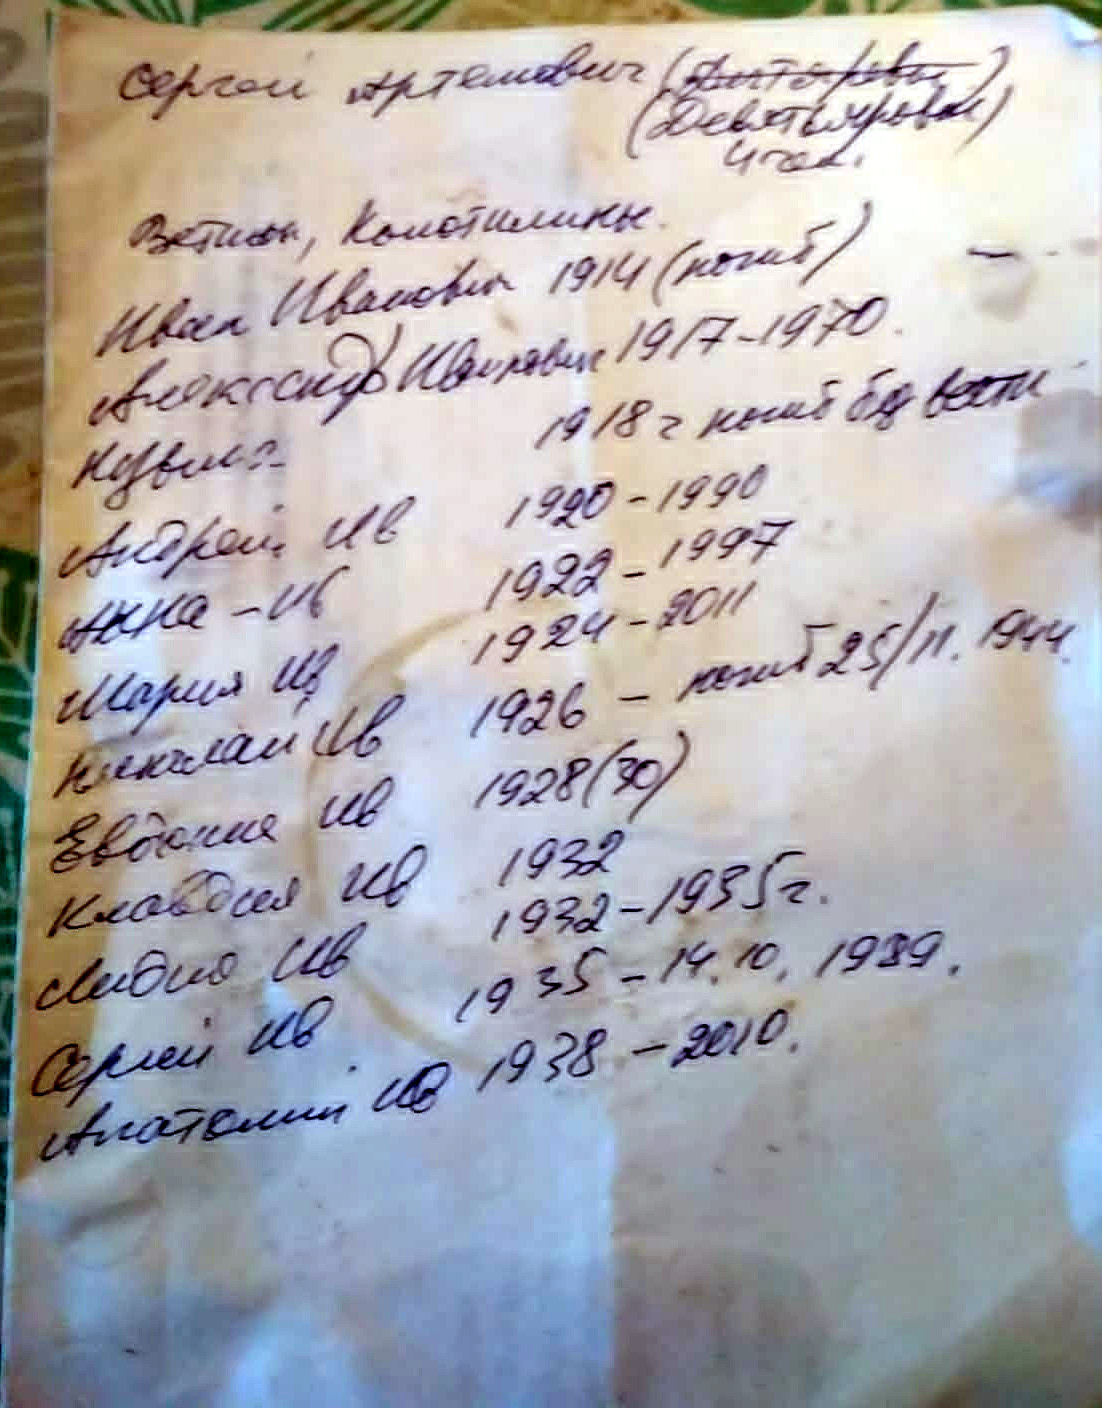 Сергей Артемович
(Девятьяровы)
4 чел.
Ветины, Колотилины.
Иван Иванович 1914 (погиб)
Александр Иванович 1917-1970.
Кузьма 1918 г погиб без вести
Андрей Ив 1920-1990
Анна - Ив 1922-1997
Мария Ив 1924-2011
Николай Ив 1926 - погиб 25/11. 1944.
Евдокия Ив 1928 (30)
Клавдия Ив 1932
Лидия Ив 1932-1935 г.
Сергей Ив 1935-14.10. 1989.
Анатолий Ив 1938-2010.